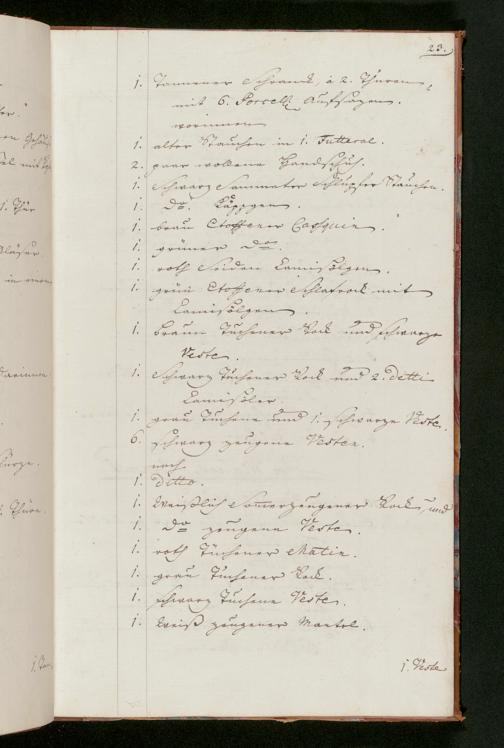 23.
1. Tannener Schranck, à 2. Thüren,
mit 6. Porcell. Aufsäzen.
worinnen
1. alter Stauchen in 1. Futteral.
2. paar wollene Handschuh.
1. Schwarz Sammeter Schlupfer Stauchen.
1. Do Käppgen.
1. braun Stoffener Casquin.
1. grüner Do.
1. roth Seiden Camisölgen.
1. grün Stoffener Schlafrock mit
Camisölgen.
1. braun Tuchener Rock und schwarze
Veste.
1. Schwarz Tuchener Rock und 2. detti
Camisöler.
1. grau Tuchene und 1. schwarze Veste.
6. schwarz zeugene Vesten.
noch
1. ditto.
1. Weißlich Sommerzeugener Rock, und
1. Do zeugene Veste.
1. roth Tuchener Matin.
1. grau Tuchener Rock.
1. schwarz Tuchene Veste.
1. Weiß zeugener Mantel.
1. Veste